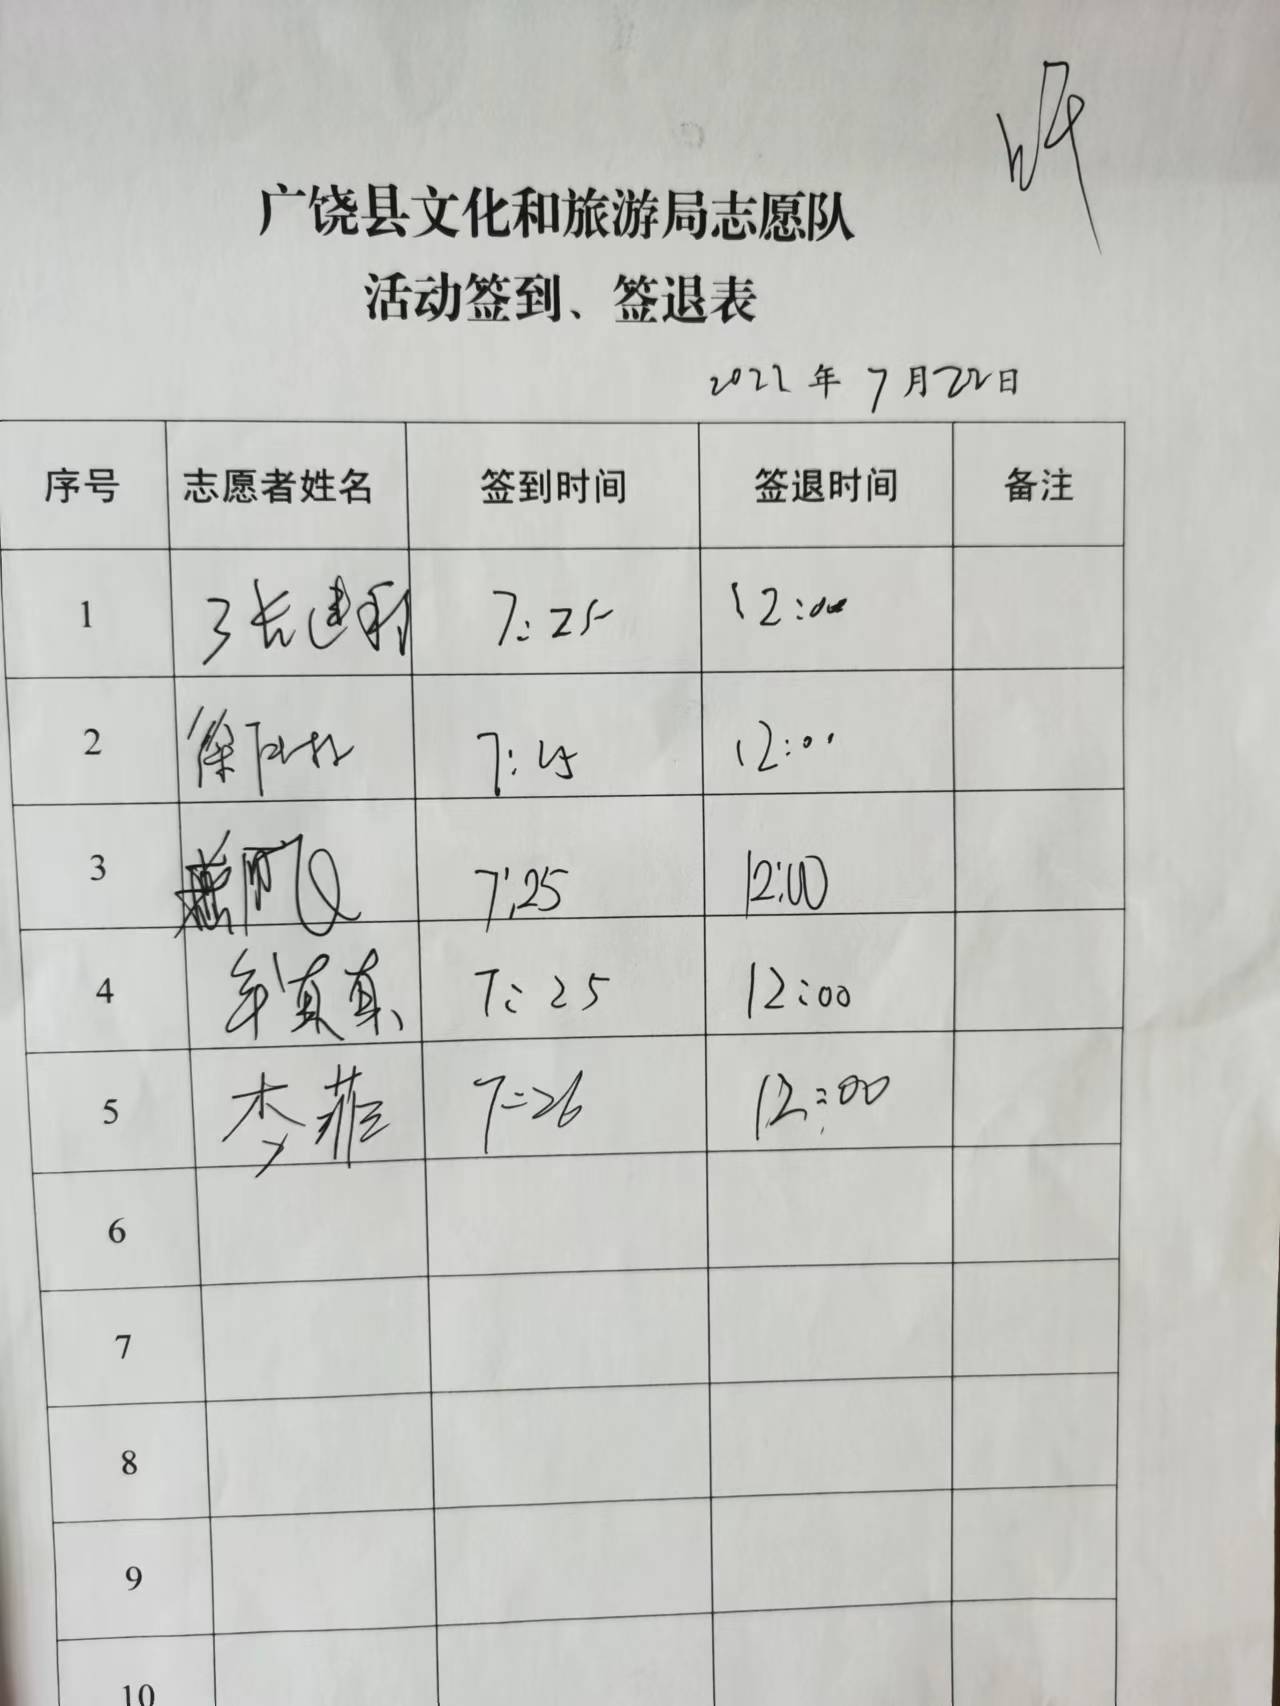 广饶县文化和旅游局志愿队
活动签到、签退表
2022年7月22日
序号 志愿者姓名 签到时间 签退时间 备注
1 张建利 7:25 12:00
2 徐 7:25 12:00
3 7:25 12:00
4 年真真 7:25 12:00
5 李菲 7:26 12:00
6
7
8
9
10